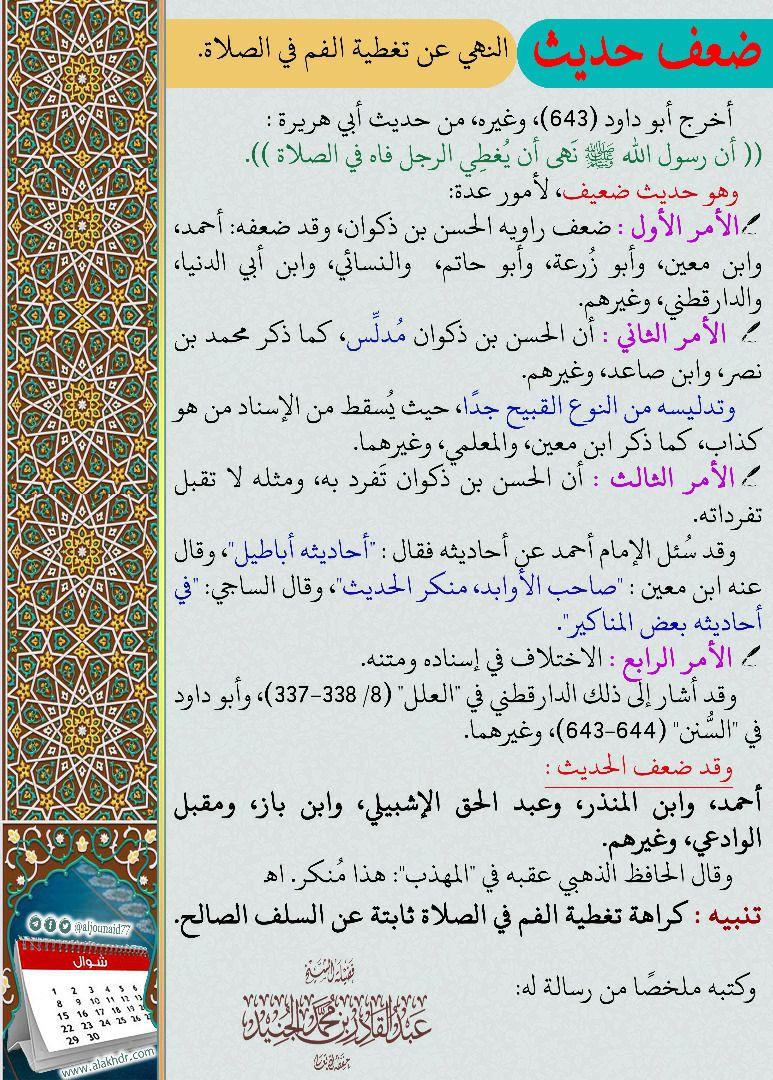 ضعف حديث
النهي عن تغطية الفم في الصلاة.
أخرج أبو داود (643)، وغيره، من حديث أبي هريرة :
(( أن رسول الله ﷺ نَهى أن يُغطِي الرجل فاه في الصلاة )).
وهو حديث ضعيف، لأمور عدة:
الأمر الأول : ضعف راويه الحسن بن ذكوان، وقد ضعفه: أحمد،
وابن معين، وأبو زُرعة، وأبو حاتم، والنسائي، وابن أبي الدنيا،
والدارقطني، وغيرهم.
الأمر الثاني : أن الحسن بن ذكوان مُدلِّس، كما ذكر محمد بن
نصر، وابن صاعد، وغيرهم.
وتدليسه من النوع القبيح جدًا، حيث يُسقط من الإسناد من هو
كذاب، كما ذكر ابن معين، والمعلمي، وغيرهما.
الأمر الثالث : أن الحسن بن ذكوان تَفرد به، ومثله لا تقبل
تفرداته.
وقد سُئل الإمام أحمد عن أحاديثه فقال : "أحاديثه أباطيل"، وقال
عنه ابن معين : "صاحب الأوابد، منكر الحديث"، وقال الساجي: "في
أحاديثه بعض المناكير".
الأمر الرابع : الاختلاف في إسناده ومتنه.
وقد أشار إلى ذلك الدارقطني في "العلل" (8/ 338-337)، وأبو داود
في "السُّنن" (644-643)، وغيرهما.
وقد ضعف الحديث :
أحمد، وابن المنذر، وعبد الحق الإشبيلي، وابن باز، ومقبل
الوادعي، وغيرهم.
وقال الحافظ الذهبي عقبه في "المهذب": هذا مُنكر. اهـ
تنبيه : كراهة تغطية الفم في الصلاة ثابتة عن السلف الصالح.
وكتبه ملخصًا من رسالة له:
فضيلة الشيخ
عبد القادر بن محمد الجنيد
حفظه الله
@aljounaid77
شوال
1 2 3 4 5 6
8 9 10 11 12 13
15 16 17 18 19 20
22 23 24 25 26
29 30
www.alakhdr.com